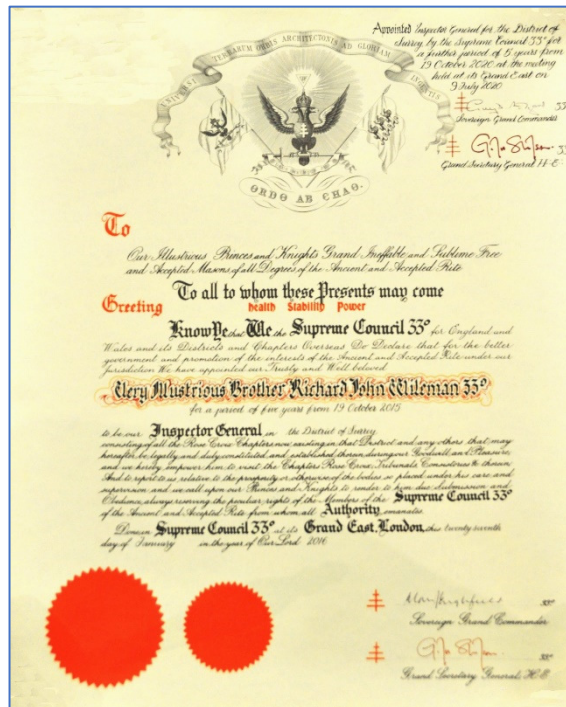 UNIVERSI TERRARUM ORBIS ARCHITECTONIS AD GLORIAM INGENTIS
ORDO AB CHAO.
Appointed Inspector General for the District of
Surrey by the Supreme Council 33° for
a further period of 5 years from
19 October 2020 at the meeting
held at its Grand East on
9 July 2020
33°
Sovereign Grand Commander
33°
Grand Secretary General H.E.
To
Our Illustrious Princes and Knights Grand Ineffable and Sublime Free
and Accepted Masons of all Degrees of the Ancient and Accepted Rite
To all to whom these Presents may come
Greeting
Health Stability Power
Know Ye that We the Supreme Council 33° for England and
Wales and its Districts and Chapters Overseas Do Declare that for the better
government and promotion of the interests of the Ancient and Accepted Rite under our
jurisdiction We have appointed our Trusty and Well beloved
Very Illustrious Brother Richard John Wileman 33°
for a period of five years from 19 October 2015
to be our Inspector General in the District of Surrey
consisting of all the Rose Croix Chapters now existing in that District and any others that may
hereafter be legally and duly constituted and established therein during our Goodwill and Pleasure,
and we hereby empower him to visit the Chapters Rose Croix, Tribunals, Consistories &c therein
And to report to us, relative to the prosperity or otherwise of the bodies so placed under his care and
supervision and we call upon our Princes and Knights to render to him due Submission and
Obedience, always reserving the peculiar rights of the Members of the Supreme Council 33°
of the Ancient and Accepted Rite from whom all Authority emanates.
Done in Supreme Council 33° at its Grand East, London, this twenty seventh
day of January in the year of Our Lord 2016
33°
Sovereign Grand Commander
33°
Grand Secretary General, H.E.